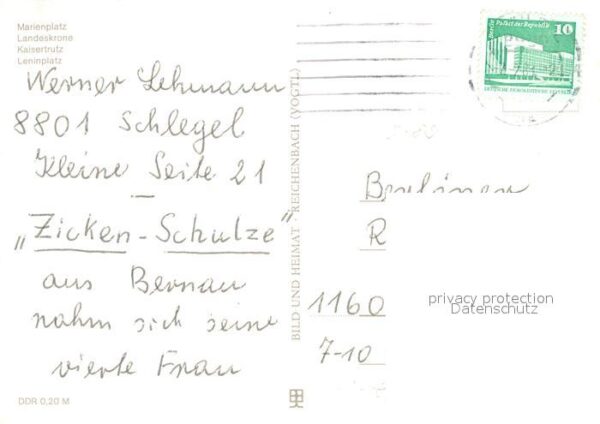 Marienplatz
Landeskrone
Kaisertrutz
Leninplatz
Werner Lehmann
8801 Schlegel
Kleine Seite 21
—
„Zicken-Schulze"
aus Bernau
nahm sich seine
vierte Frau
DDR 0,20 M
BILD UND HEIMAT · REICHENBACH (VOGTL)
Berlin Palast der Republik
10
DEUTSCHE DEMOKRATISCHE REPUBLIK
Berliner
R
1160
7-10
privacy protection
Datenschutz